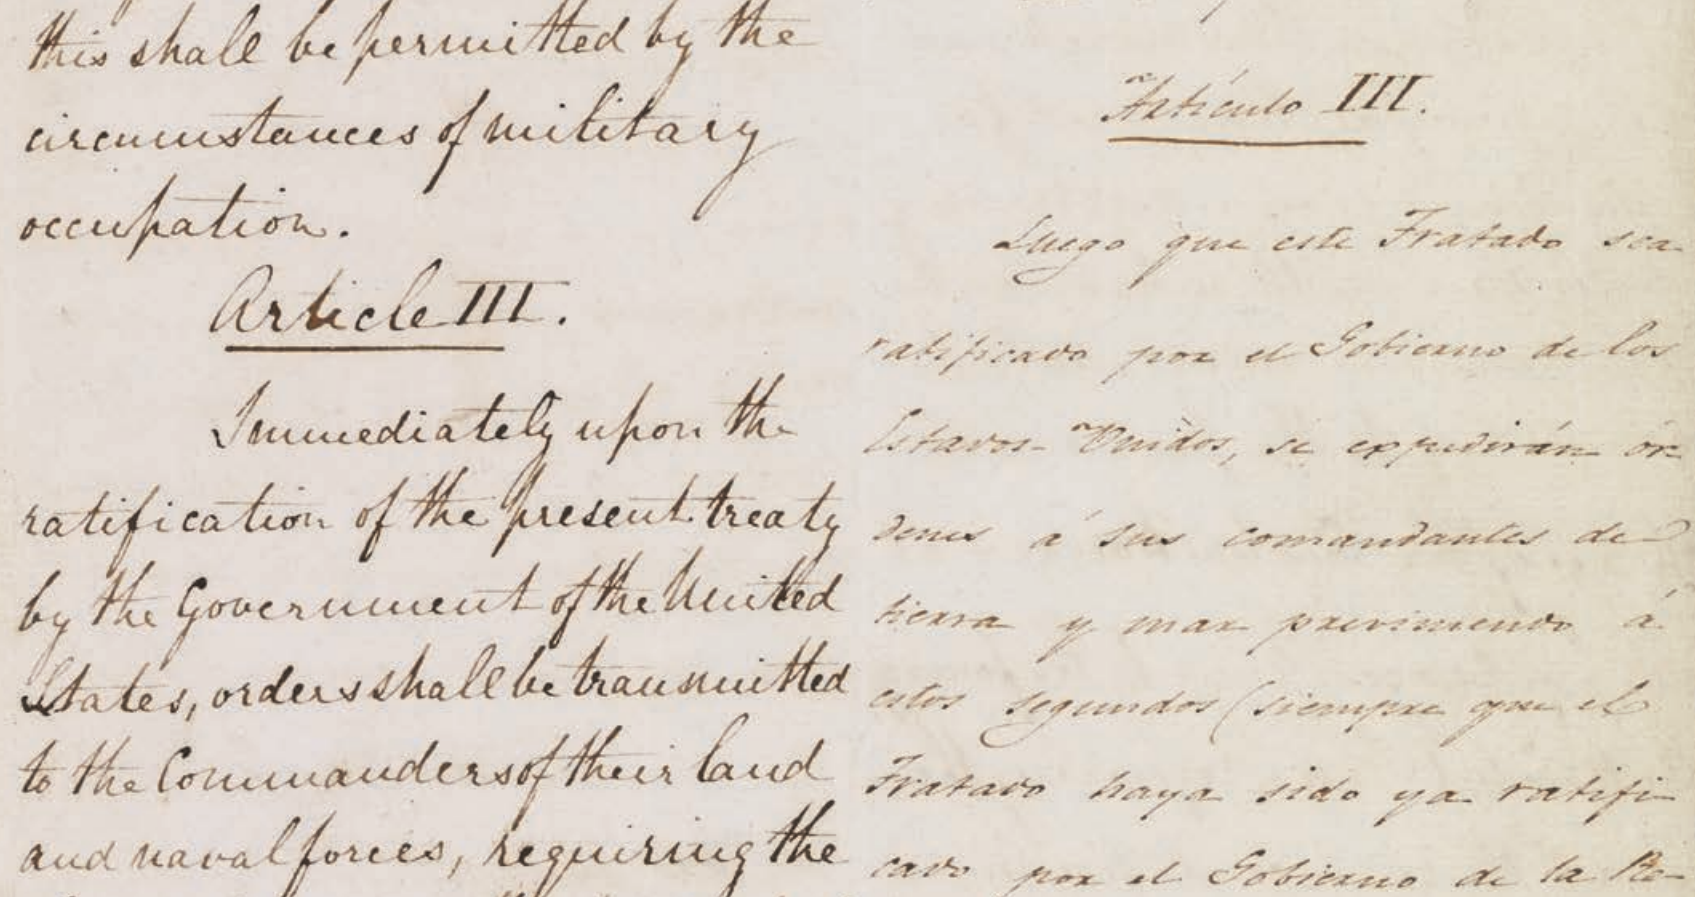 this shall be permitted by the
circumstances of military
occupation.
Article III.
Immediately upon the
ratification of the present treaty
by the Government of the United
States, orders shall be transmitted
to the Commanders of their land
and naval forces, requiring the
Artículo III.
Luego que este Tratado sea
ratificado por el Gobierno de los
Estados-Unidos, se expedirán ór-
denes á sus comandantes de
tierra y mar previniendo á
estos segundos (siempre que el
Tratado haya sido ya ratifi-
cado por el Gobierno de la Re-